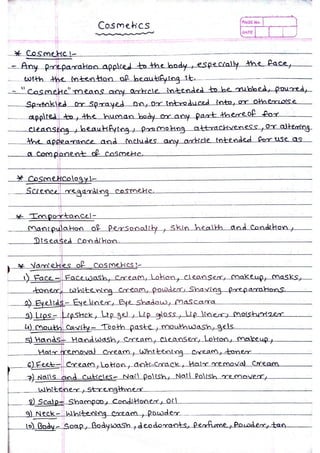 Cosmetics
PAGE No.
DATE
* Cosmetic :-
- Any preparation applied to the body, especially the face,
with the intention of beautifying it.
- "Cosmetic" means any article intended to be rubbed, poured,
Sprenkled or sprayed on, or introduced into, or otherwise
applied to, the human body or any part thereof for
cleansing, beautifying, promoting attractiveness, or altering
the appearance and includes any article intended for use as
a component of cosmetic.
* Cosmeticology :-
Science regarding cosmetic.
* Importance :-
Manipulation of Personality, Skin health and Condition,
Diseased Condition.
* Varieties of Cosmetics :-
1) Face - Facewash, Cream, Lotion, Cleanser, Makeup, Masks,
toner, Whitening Cream, powder, Shaving preparations.
2) Eyelids - Eyeliner, Eye Shadow, Mascara
3) Lips - Lipstick, Lip gel, Lip gloss, Lip liner, Moisturizer
4) Mouth Cavity - Tooth paste, mouthwash, gels
5) Hands - Handwash, Cream, Cleanser, Lotion, Makeup,
Hair removal Cream, Whitening Cream, toner
6) Feet - Cream, Lotion, Anti-Crack, Hair removal Cream
7) Nails and Cuticles - Nail polish, Nail Polish remover,
Whitener, Strengthner
8) Scalp - Shampoo, Conditioner, Oil
9) Neck - Whitening Cream, Powder
10) Body - Soap, Bodywash, deodorants, Perfume, Powder, tan